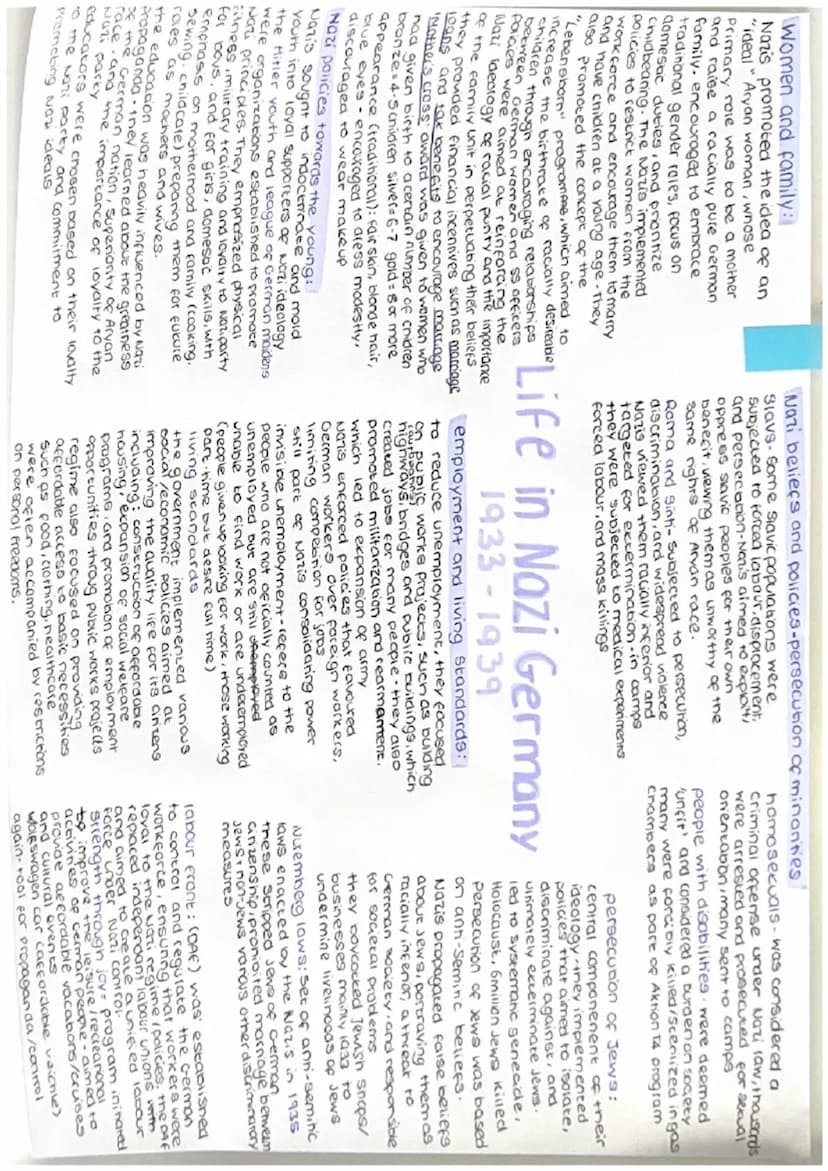 Life in Nazi Germany
1933 - 1939
Women and family:
Nazis promoted the idea of an
"ideal" Aryan woman, whose
primary role was to be a mother
and raise a racially pure German
family. encouraged to embrace
traditional gender roles, focus on
domestic duties, and prioritize
childbearing. The Nazis implemented
policies to restrict women from the
workforce and encourage them to marry
and have children at a young age. They
also promoted the concept of the
"Lebensborn" programme, which aimed to
increase the birthrate of racially desireable
children through encouraging relationships
between German women and SS officers
Policies were aimed at reinforcing the
Nazi ideology of racial purity and the importance
of the family unit in perpetuating their beliefs
they provided financial incentives such as marriage
loans and tax benefits to encourage marriage
"mothers cross" award was given to women who
had given birth to a certain number of children
bronze=4-5 children silver=6-7 gold=8 or more
appearance (traditional): fair skin, blonde hair,
blue eyes - encouraged to dress modestly,
discouraged to wear makeup
Nazi policies towards the young:
Nazis sought to indoctrinate and mold
youth into loyal supporters of Nazi ideology
the Hitler youth and league of German maidens
were organizations established to promote
Nazi principles. They emphasized physical
fitness, military training and loyalty to Nazi party
for boys. and for girls, domestic skills, with
emphasis on motherhood and family (cooking,
sewing, childcare) preparing them for future
roles as mothers and wives.
the education was heavily influenced by Nazi
Propaganda - they learned about the greatness
of the German nation, superiority of Aryan
race, and the importance of loyalty to the
Nazi party
educators were chosen based on their loyalty
to the Nazi party and commitment to
promoting Nazi ideals
Nazi beliefs and policies-persecution of minorities
Slavs- some slavic populations were
subjected to forced labour, displacement,
and persecution. Nazis aimed to exploit/
oppress slavic peoples for their own
benefit, viewing them as unworthy of the
same rights of Aryan race.
Roma and Sinti- subjected to persecution,
discrimination, and widespread violence
Nazis viewed them racially inferior and
targeted for extermination. in camps
they were subjected to medical experiments
forced labour, and mass killings
homosexuals - was considered a
criminal offense under Nazi law, thousands
were arrested and prosecuted for sexual
orientation, many sent to camps
people with disabilities - were deemed
'unfit' and considered a burden on society
many were forcibly killed/sterilized in gas
chambers as part of Aktion T4 program
employment and living standards:
to reduce unemployment, they focused
on public works projects, such as building
(autobahns)
highways, bridges and public buildings, which
created jobs for many people. they also
promoted militarization and rearmament,
which led to expansion of army
Nazis enforced policies that favoured
German workers over foreign workers,
limiting competition for jobs
still part of Nazis consolidating power
invisible unemployment - refers to the
people who are not officially counted as
unemployed but are still unemployed
unable to find work or are underemployed
(people given up looking for work, those working
part-time but desire full time)
living standards
the government implemented various
social/economic policies aimed at
improving the quality life for its citizens
including: construction of affordable
housing, expansion of social welfare
programs, and promotion of employment
opportunities throug public works projects
regime also focused on providing
affordable access to basic necessities
such as food, clothing, healthcare
were often accompanied by restrictions
on personal freedoms.
persecution of Jews:
central componenent of their
ideology - they implemented
policies that aimed to isolate,
discriminate against, and
ultimately exterminate Jews.
led to systematic genocide,
Holocaust, 6 million Jews killed
Persecution of Jews was based
on anti-semitic beliefs.
Nazis propagated false beliefs
about Jews, portraying them as
racially inferior, a threat to
German society and responsible
for societal problems
they boycotted Jewish shops/
businesses mainly 1933 to
undermine livelihoods of Jews
Nuremberg laws: set of anti-semitic
laws enacted by the Nazis in 1935
these stripped Jews of German
citizenship, prohibited marriage between
Jews + non-Jews various other discriminatory
measures
labour front: (DAF) was established
to control and regulate the German
workforce, ensuring that workers were
loyal to the Nazi regime/policies, the DAF
replaced independant labour unions with
and aimed to create a unified labour
force under Nazi control.
strength through joy: program initiated
to improve the leisure/recreational
activities of German people - aimed to
provide affordable vacations/cruises
and cultural events
Volkswagen car (affordable vehicle)
again - tool for propaganda/control